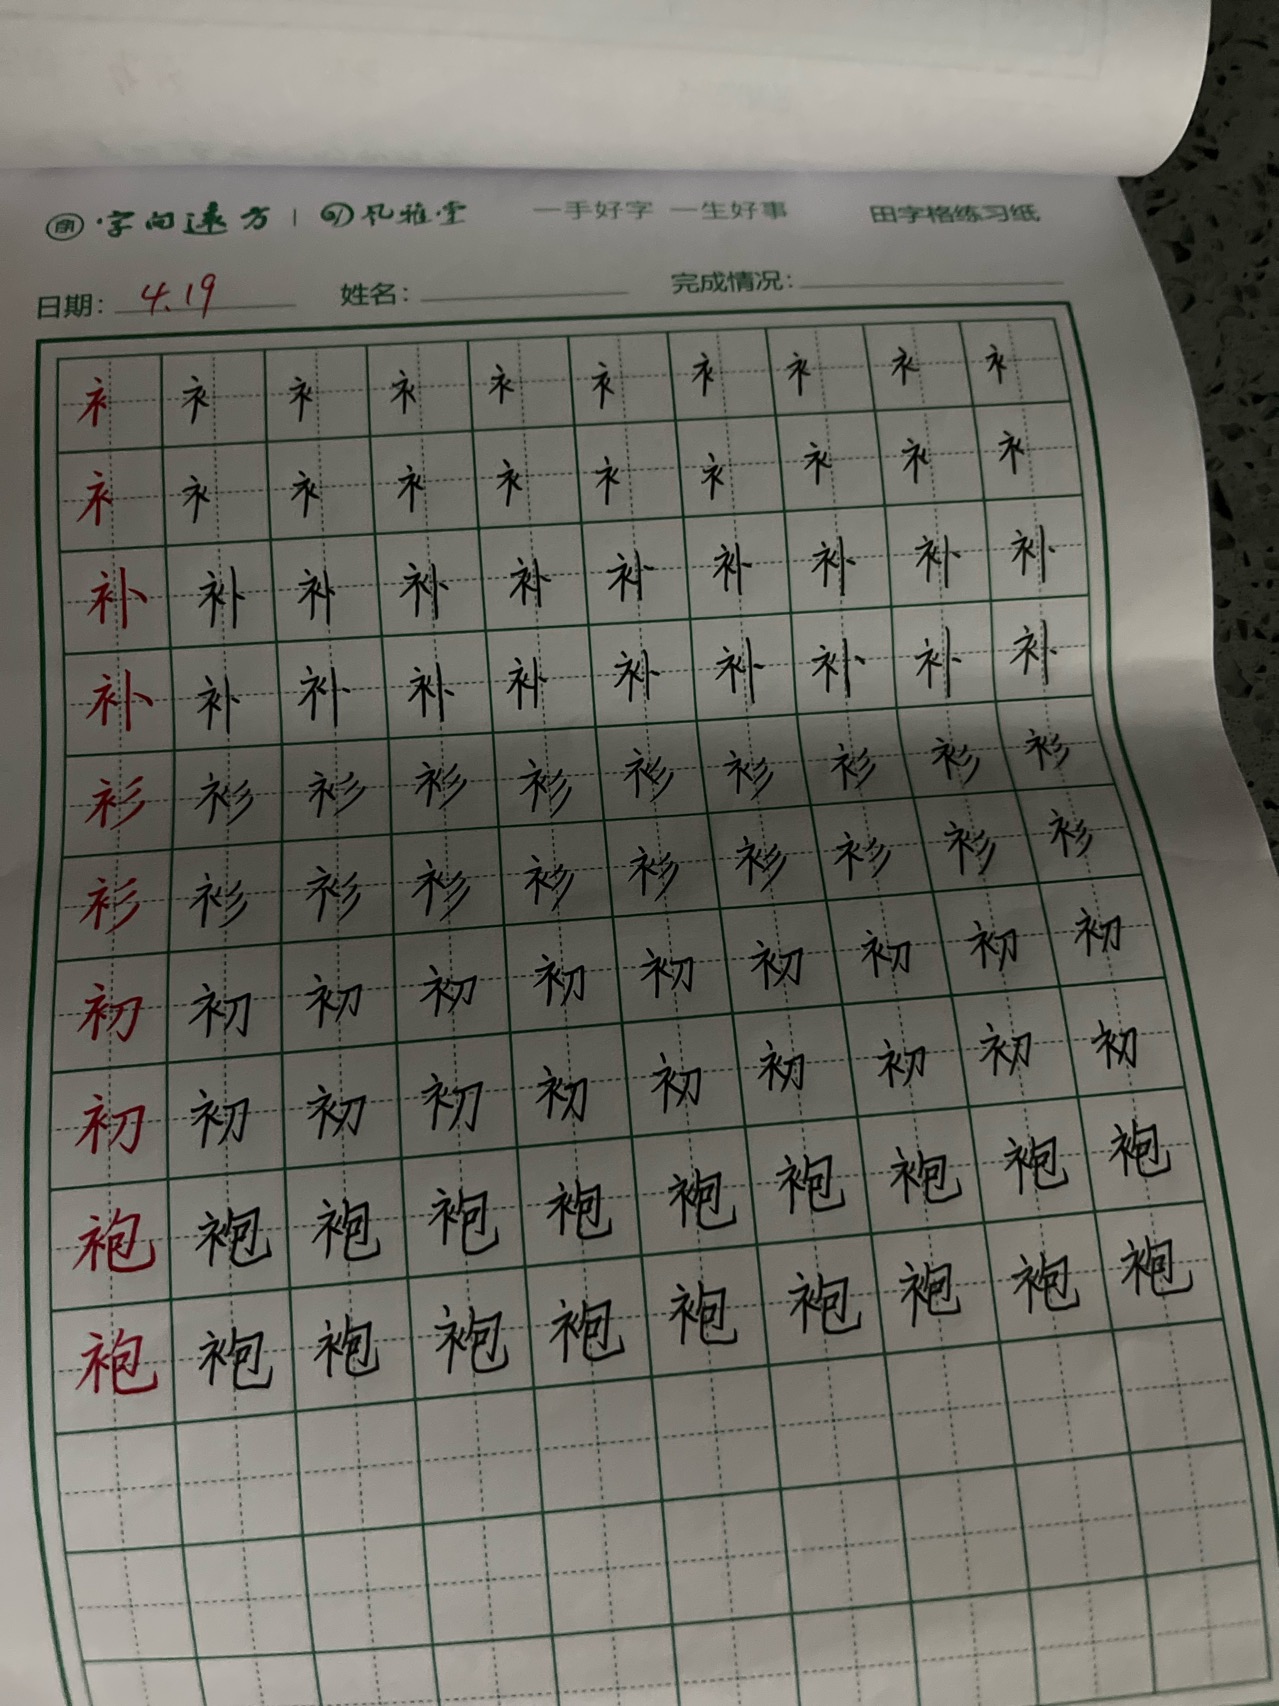 字向远方 | 风雅堂 一手好字 一生好事 田字格练习纸
日期: 4.19 姓名: 完成情况:
衤 衤 衤 衤 衤 衤 衤 衤 衤 衤
衤 衤 衤 衤 衤 衤 衤 衤 衤 衤
补 补 补 补 补 补 补 补 补 补
补 补 补 补 补 补 补 补 补 补
衫 衫 衫 衫 衫 衫 衫 衫 衫 衫
衫 衫 衫 衫 衫 衫 衫 衫 衫 衫
初 初 初 初 初 初 初 初 初 初
初 初 初 初 初 初 初 初 初 初
袍 袍 袍 袍 袍 袍 袍 袍 袍 袍
袍 袍 袍 袍 袍 袍 袍 袍 袍 袍